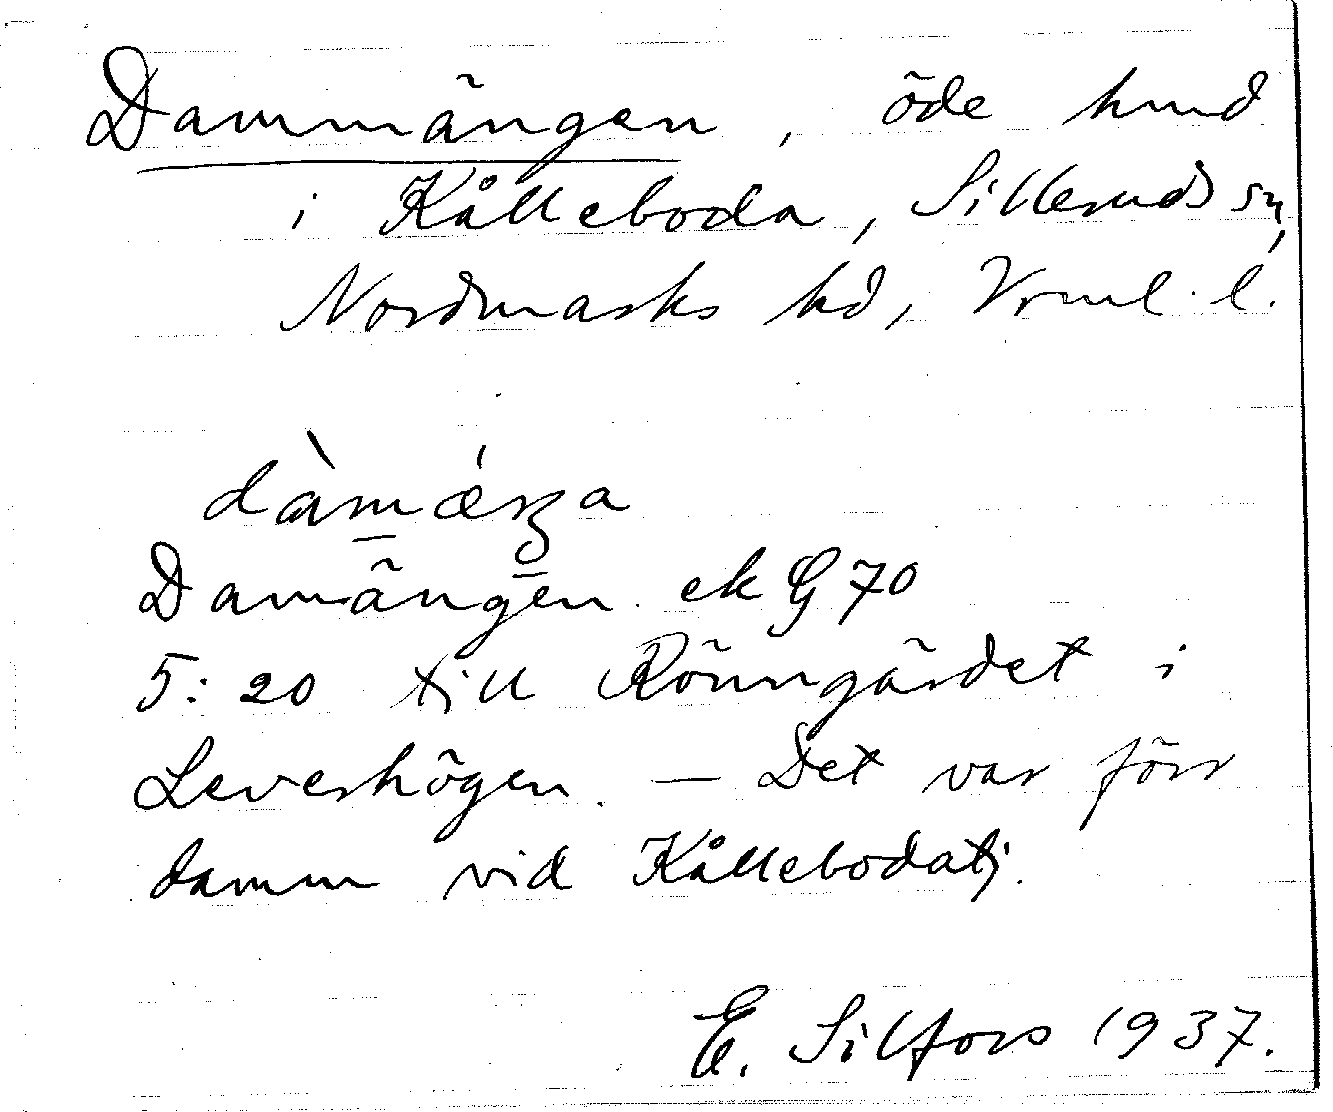 Dammängen, öde hmd
i Kålleboda, Silleruds sn,
Nordmarks hd, Vrml. l.
dàmǽŋa
Damängen ek G 70
5:20 till Rönngärdet i
Leverhögen. — Det var förr
damm vid Kållebodatj.
E. Silfors 1937.